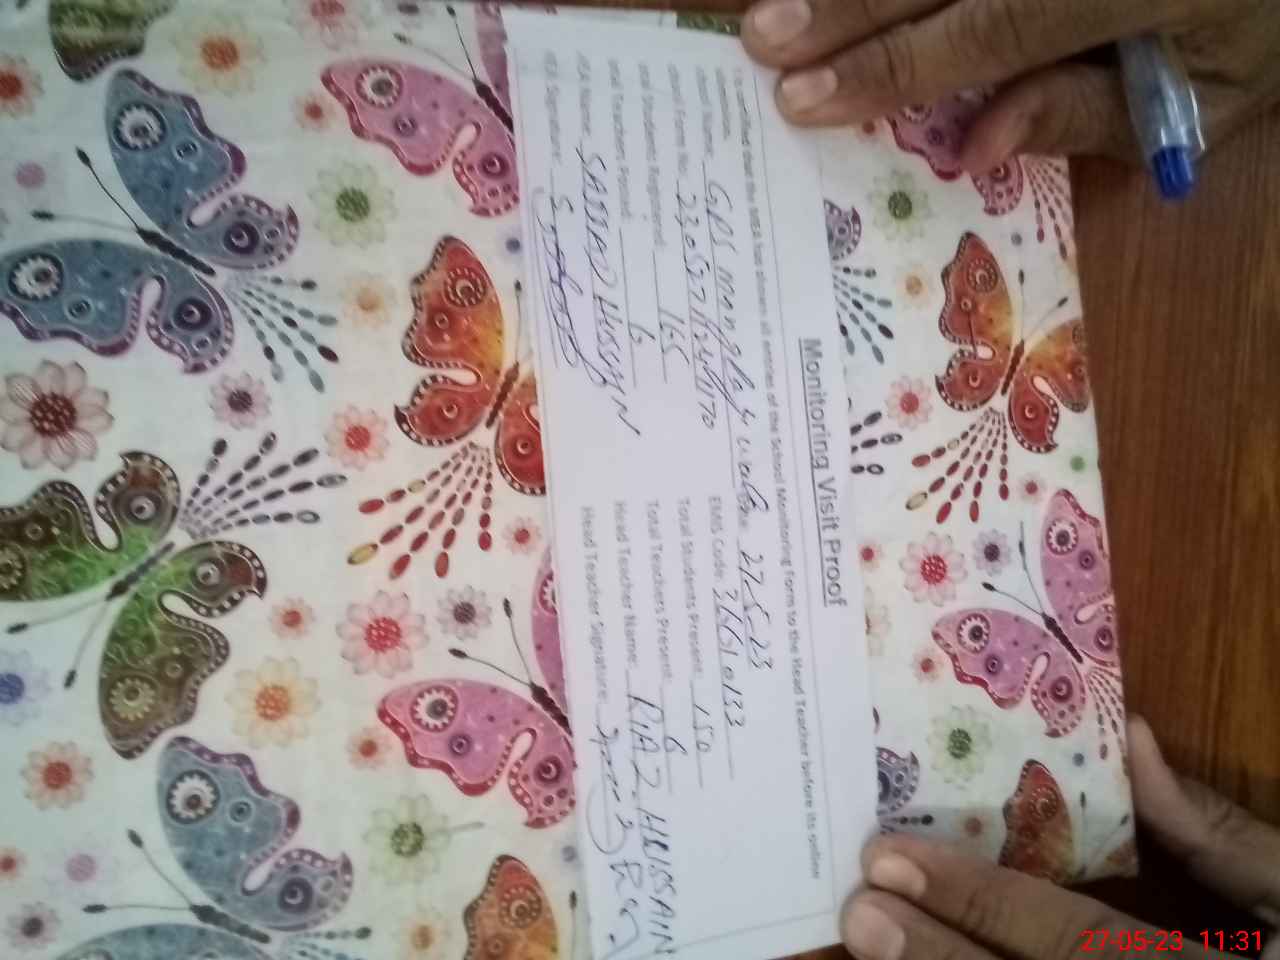 Monitoring Visit Proof
certified that the MEA has shown all entries of the School Monitoring Form to the Head Teacher before its online
School Name: GPS Date: 27-5-23
School Form No: EMIS Code:
Total Students Registered: 165 Total Students Present: 150
Total Teachers Posted: 6 Total Teachers Present: 6
MEA Name: SAJJAD HUSSAIN Head Teacher Name: RIAZ HUSSAIN
MEA Signature: Head Teacher Signature:
27-05-23 11:31